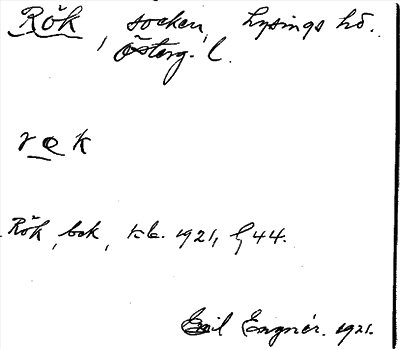 Rök, socken, Lysings hd.
Österg. l.
rek
Rök, bok, kb. 1921, § 44.
Emil Engnér. 1921.